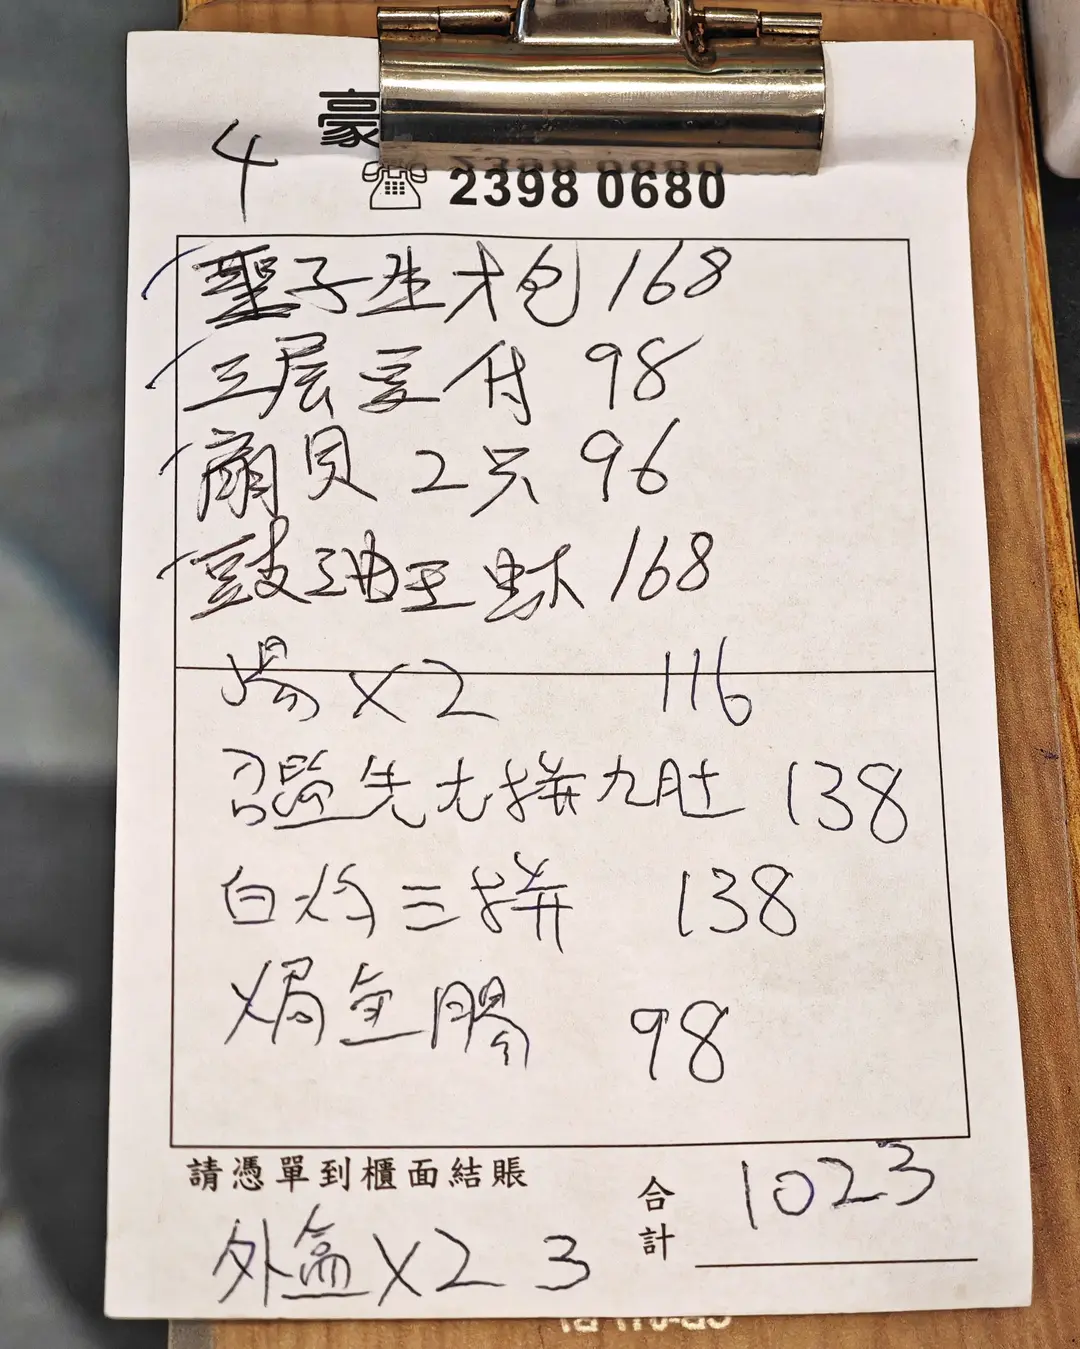 豪
4
2398 0680
聖子生才包 168
三层豆付 98
扇貝 2只 96
豉油王 168
湯 X2 116
先尤拼九肚 138
白灼三拼 138
焗魚腸 98
請憑單到櫃面結賬
合計 1023
外盒X2 3